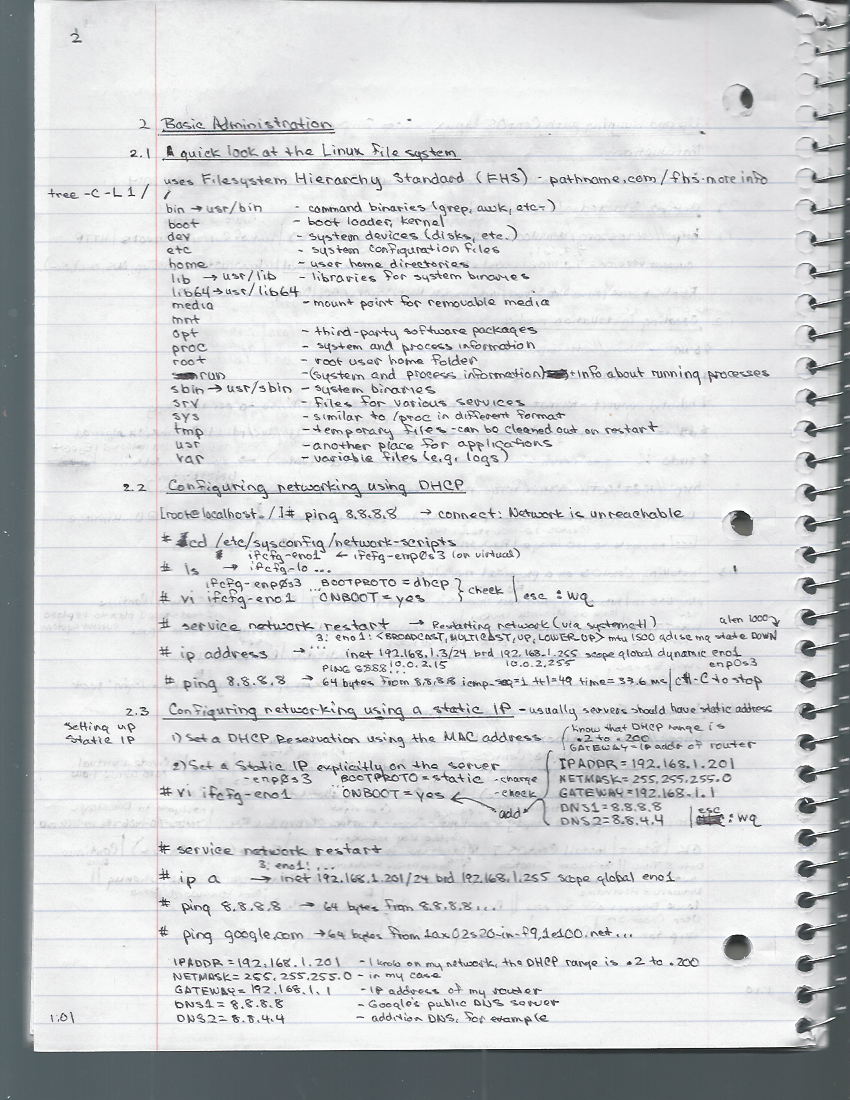 2
2 Basic Administration
2.1 A quick look at the Linux file system
uses Filesystem Hierarchy Standard (FHS) - pathname.com/fhs - more info
tree -C -L 1 / /
bin → usr/bin - command binaries (grep, awk, etc.)
boot - boot loader, kernel
dev - system devices (disks, etc.)
etc - system configuration files
home - user home directories
lib → usr/lib - libraries for system binaries
lib64 → usr/lib64
media - mount point for removable media
mnt
opt - third-party software packages
proc - system and process information
root - root user home folder
run - (system and process information) + info about running processes
sbin → usr/sbin - system binaries
srv - files for various services
sys - similar to /proc in different format
tmp - temporary files - can be cleaned out on restart
usr - another place for applications
var - variable files (e.g. logs)
2.2 Configuring networking using DHCP
[root@localhost /]# ping 8.8.8.8 → connect: Network is unreachable
# cd /etc/sysconfig/network-scripts
ifcfg-eno1 ← ifcfg-enp0s3 (on virtual)
# ls → ifcfg-lo ...
ifcfg-enp0s3 ... BOOTPROTO = dhcp } check | esc :wq
# vi ifcfg-eno1 ONBOOT = yes
# service network restart → Restarting network (via systemctl) qlen 1000
3: eno1: <BROADCAST, MULTICAST, UP, LOWER_UP> mtu 1500 qdisc mq state DOWN
# ip address → ... inet 192.168.1.3/24 brd 192.168.1.255 scope global dynamic eno1
PING 8.8.8.8 10.0.2.15 10.0.2.255 enp0s3
# ping 8.8.8.8 → 64 bytes from 8.8.8.8 icmp_seq=1 ttl=49 time=33.6 ms | ctl-C to stop
2.3 Configuring networking using a static IP - usually servers should have static address
Setting up
Static IP
1) Set a DHCP Reservation using the MAC address
know that DHCP range is
.2 to .200
GATEWAY = IP addr of router
2) Set a Static IP explicitly on the server
IPADDR = 192.168.1.201
- enp0s3 BOOTPROTO = static - change
NETMASK = 255.255.255.0
# vi ifcfg-eno1 ... ONBOOT = yes - check
GATEWAY = 192.168.1.1
add
DNS1 = 8.8.8.8
DNS2 = 8.8.4.4 | esc :wq
# service network restart
3: eno1: ...
# ip a → inet 192.168.1.201/24 brd 192.168.1.255 scope global eno1
# ping 8.8.8.8 → 64 bytes from 8.8.8.8...
# ping google.com → 64 bytes from lax02s20-in-f9.1e100.net...
IPADDR = 192.168.1.201 - I know on my network, the DHCP range is .2 to .200
NETMASK = 255.255.255.0 - in my case
GATEWAY = 192.168.1.1 - IP address of my router
DNS1 = 8.8.8.8 - Google's public DNS server
DNS2 = 8.8.4.4 - addition DNS, for example
1:01